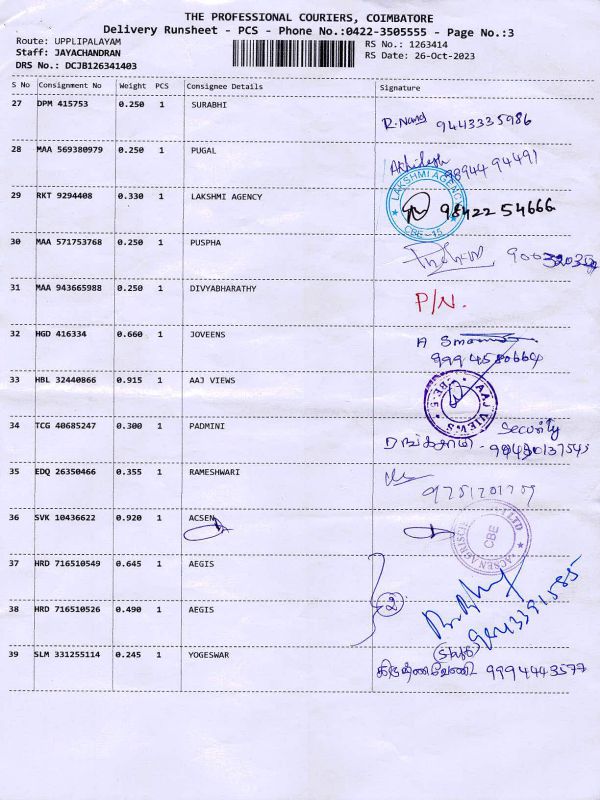 THE PROFESSIONAL COURIERS, COIMBATORE
Delivery Runsheet - PCS - Phone No.:0422-3505555 - Page No.:3
Route: UPPLIPALAYAM
Staff: JAYACHANDRAN
DRS No.: DCJB126341403
RS No.: 1263414
RS Date: 26-Oct-2023
S No Consignment No Weight PCS Consignee Details Signature
27 DPM 415753 0.250 1 SURABHI
R.Nand 9443335986
28 MAA 569380979 0.250 1 PUGAL
Akhilesh 98944 94491
29 RKT 9294408 0.330 1 LAKSHMI AGENCY
LAKSHMI AGENCY CBE-15
98422 54666
30 MAA 571753768 0.250 1 PUSPHA
31 MAA 943665988 0.250 1 DIVYABHARATHY
P/N.
32 HGD 416334 0.660 1 JOVEENS
A
9994580664
33 HBL 32440866 0.915 1 AAJ VIEWS
AAJ VIEWS CBE-5
34 TCG 40685247 0.300 1 PADMINI
Security
35 EDQ 26350466 0.355 1 RAMESHWARI
9751201759
36 SVK 10436622 0.920 1 ACSEN
ACSEN LTD CBE
37 HRD 716510549 0.645 1 AEGIS
2
38 HRD 716510526 0.490 1 AEGIS
39 SLM 331255114 0.245 1 YOGESWAR
9994443577